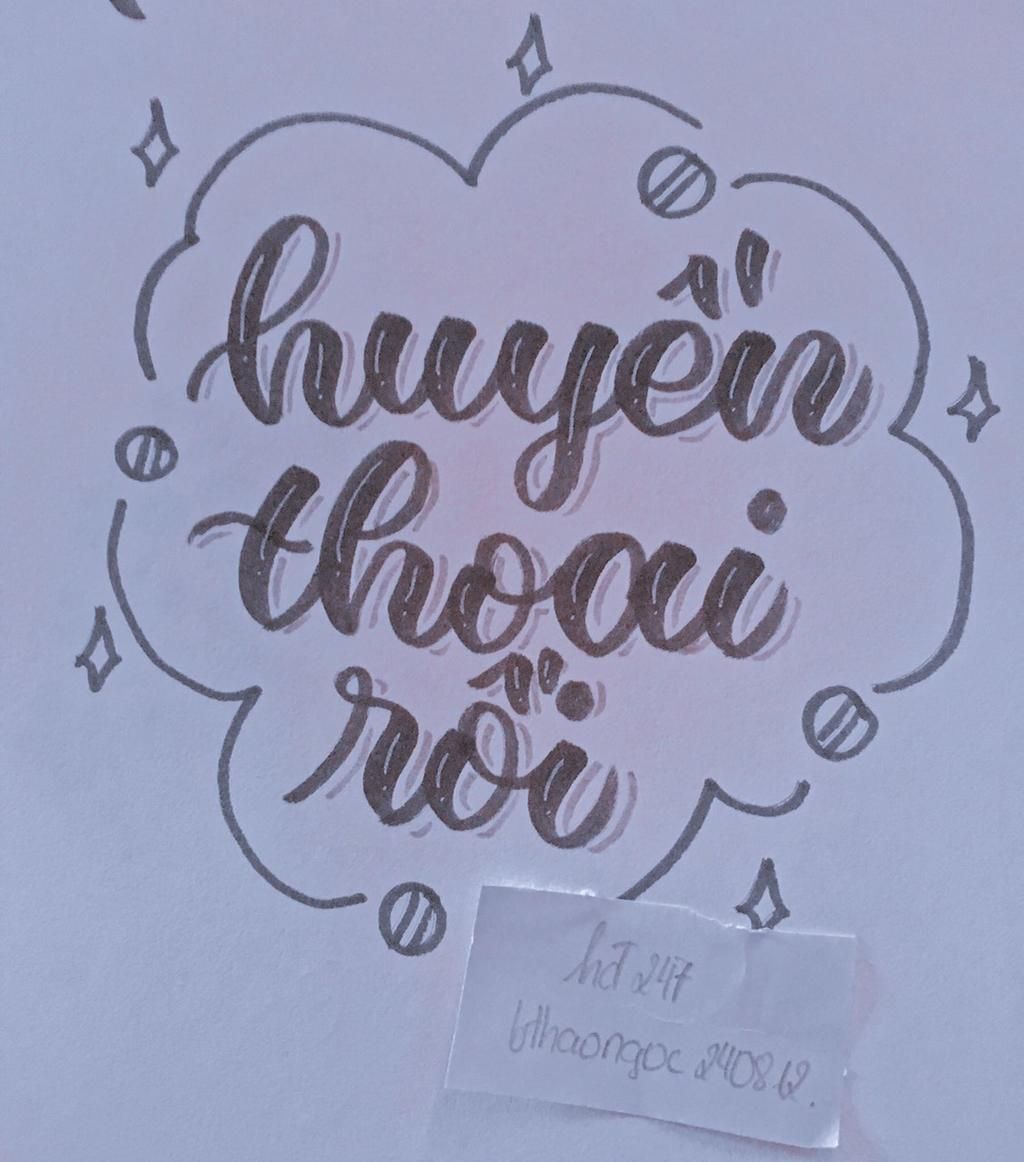 huyền
thoai
rồi
hđ 247
bthaongoc 240812.